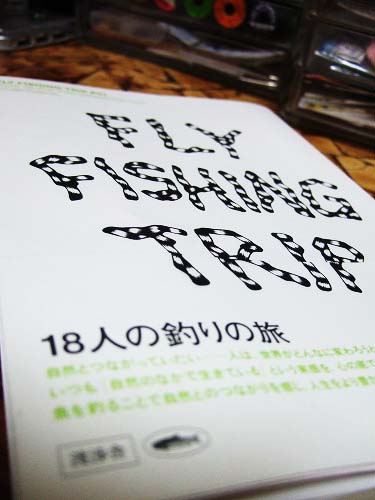 FLY
FISHING
TRIP
18人の釣りの旅
自然とつながっていたい
人は、世界がどんなに変わろうと
いつも「自然のなかで生きている」という実感を、心の底で
魚を釣ることで自然とのつながりを感じ、人生をより豊か